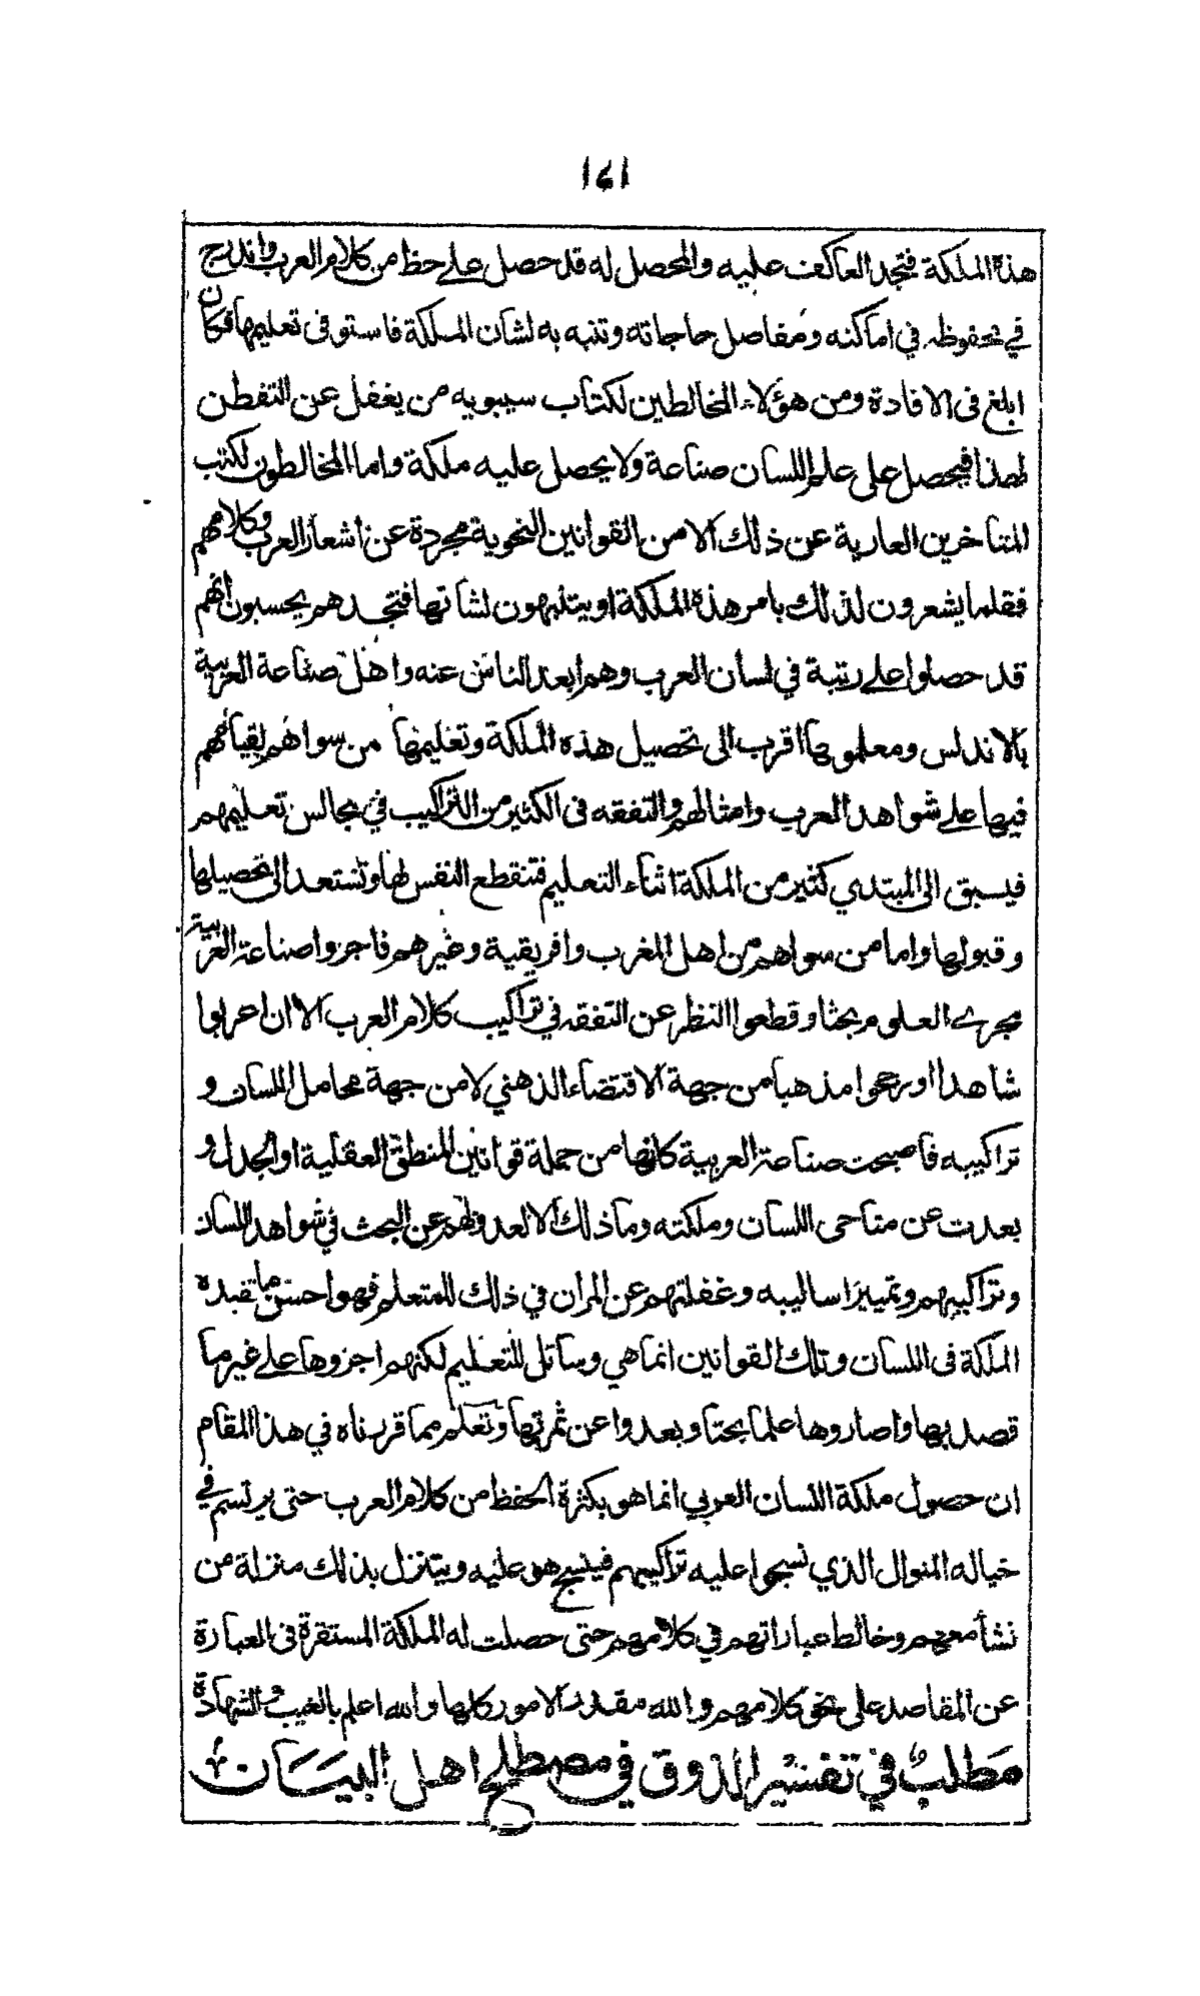 ١٤١
هذه الملكة فتجد العاكف عليه والمحصل له قد حصل على حظ من كلام العرب واندرج
في محفوظه في اماكنه ومفاصل حاجاته وتنبه به لشان الملكة فاستوفى تعليمها فكان
ابلغ فى الافادة ومن هؤلاء المخالطين لكتاب سيبويه من يغفل عن التفطن
لهذا فيحصل على علم اللسان صناعة ولا يحصل عليه ملكة واما المخالطون لكتب
المتاخرين العارية عن ذلك الا من القوانين النحوية مجردة عن اشعار العرب وكلامهم
فقلما يشعرون لذلك بامر هذه الملكة او يتنبهون لشانها فتجدهم يحسبون انهم
قد حصلوا على رتبة في لسان العرب وهم ابعد الناس عنه واهل صناعة العربية
بالاندلس ومعلموها اقرب الى تحصيل هذه الملكة وتعليمها من سواهم لقيامهم
فيها على شواهد العرب وامثالهم والتفقه فى الكثير من التراكيب في مجالس تعليمهم
فيسبق الى المبتدي كثير من الملكة اثناء التعليم فتنقطع النفس لها وتستعد الى تحصيلها
وقبولها واما من سواهم من اهل المغرب وافريقية وغيرهم فاجروا صناعة العربية
مجرى العلوم بحثا وقطعوا النظر عن التفقه في تراكيب كلام العرب الا ان اعربوا
شاهدا او رجحوا مذهبا من جهة الاقتضاء الذهني لا من جهة محامل اللسان و
تراكيبه فاصبحت صناعة العربية كانها من جملة قوانين المنطق العقلية او الجدل و
بعدت عن مناحى اللسان وملكته وما ذلك الا لعدولهم عن البحث في شواهد اللسان
وتراكيبهم وتمييز اساليبه وغفلتهم عن المران في ذلك للمتعلم فهو احسن ما تفيده
الملكة فى اللسان وتلك القوانين انما هي وسائل للتعليم لكنهم اجروها على غير ما
قصد بها واصاروها علما بحتا وبعدوا عن ثمرتها وتعلم مما قررناه في هذا المقام
ان حصول ملكة اللسان العربي انما هو بكثرة الحفظ من كلام العرب حتى يرتسم في
خياله المنوال الذي نسجوا عليه تراكيبهم فينسج هو عليه ويتنزل بذلك منزلة من
نشأ معهم وخالط عباراتهم في كلامهم حتى حصلت له الملكة المستقرة فى العبارة
عن المقاصد على نحو كلامهم والله مقدر الامور كلها والله اعلم بالغيب والشهادة
مطلب في تفسير الذوق في مصطلح اهل البيان